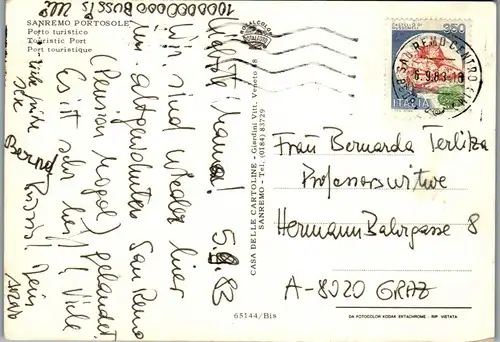 SANREMO PORTOSOLE
Porto turistico
Touristic Port
Port touristique
5.9.83
Liebste Mama!
Wir sind wieder hier
im altgewohnten San Remo
(Pension Mogol) gelandet.
Es ist sehr heiß! Viele
Bussi! Dein
Arno
Viele liebe
Bernd
1000000000 BUSSIS
CASA DELLE CARTOLINE - Giardini Vitt. Veneto 48
SANREMO - Tel. (0184) 83729
65144/Bis
350
ITALIA
SAN REMO CENTRO (IM)
6.9.83-18
Frau Bernarda Terlitza
Professorswitwe
Hermann Bahrgasse 8
A-8020 GRAZ
DA FOTOCOLOR KODAK EKTACHROME - RIP. VIETATA